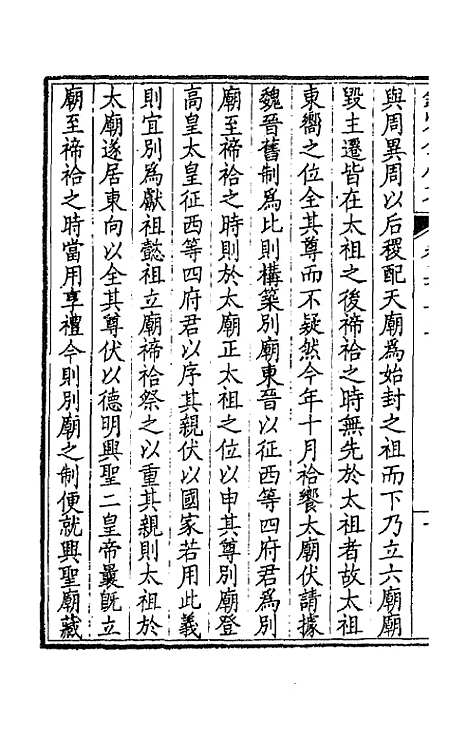 與周異周以后稷配天廟爲始封之祖而下乃立六廟廟
毀主遷皆在太祖之後禘祫之時無先於太祖者故太祖
東嚮之位全其尊而不疑然今年十月祫饗太廟伏請據
魏晉舊制爲比則構築別廟東晉以征西等四府君爲別
廟至禘祫之時則於太廟正太祖之位以申其尊別廟登
高皇太皇征西等四府君以序其親伏以國家若用此義
則宜別爲獻祖懿祖立廟禘祫祭之以重其親則太祖於
太廟遂居東向以全其尊伏以德明興聖二皇帝曩旣立
廟至禘祫之時當用享禮今則別廟之制便就興聖廟藏